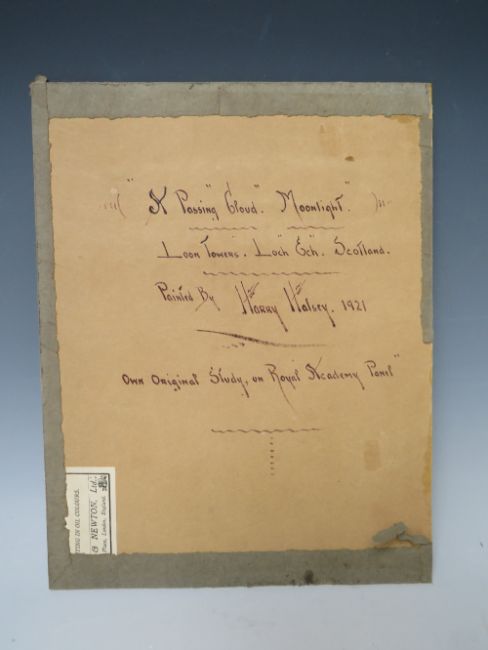 "A Passing Cloud". Moonlight"
Loon Towers. Loch Ech. Scotland.
Painted By Harry Halsey. 1921
Own Original Study, on Royal Academy Panel"
TING IN OIL COLOURS.
& NEWTON, Ltd.,
Place, London, England.